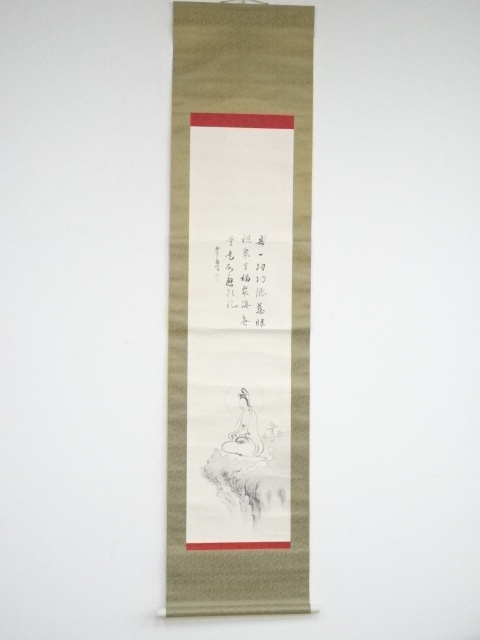 具一切功徳慈眼
視衆生福聚海無
量是故應頂礼